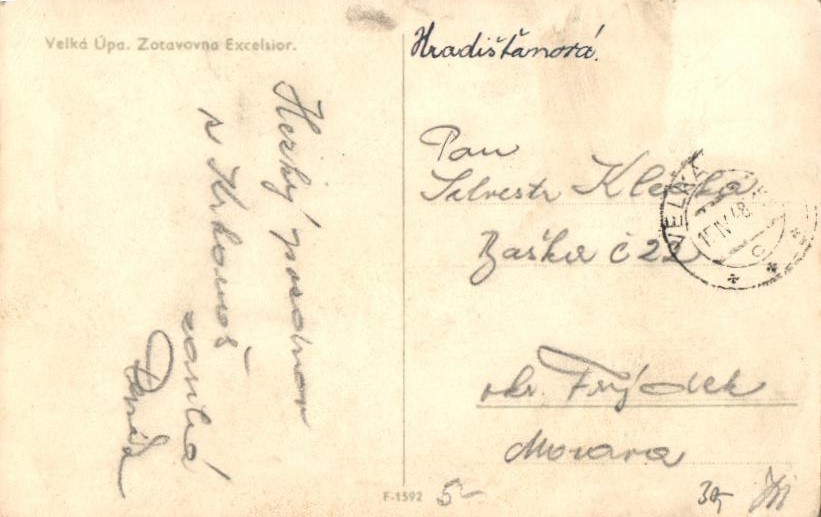 Velká Úpa. Zotavovna Excelsior.
Hezký pozdrav
z Krkonoš
zasílá
Hradišťanová.
Pan
Silvestr Klečka
Baška č 22
okr. Frýdek
Morava
VELKÁ
15 IV 48
C
F-1592
5-